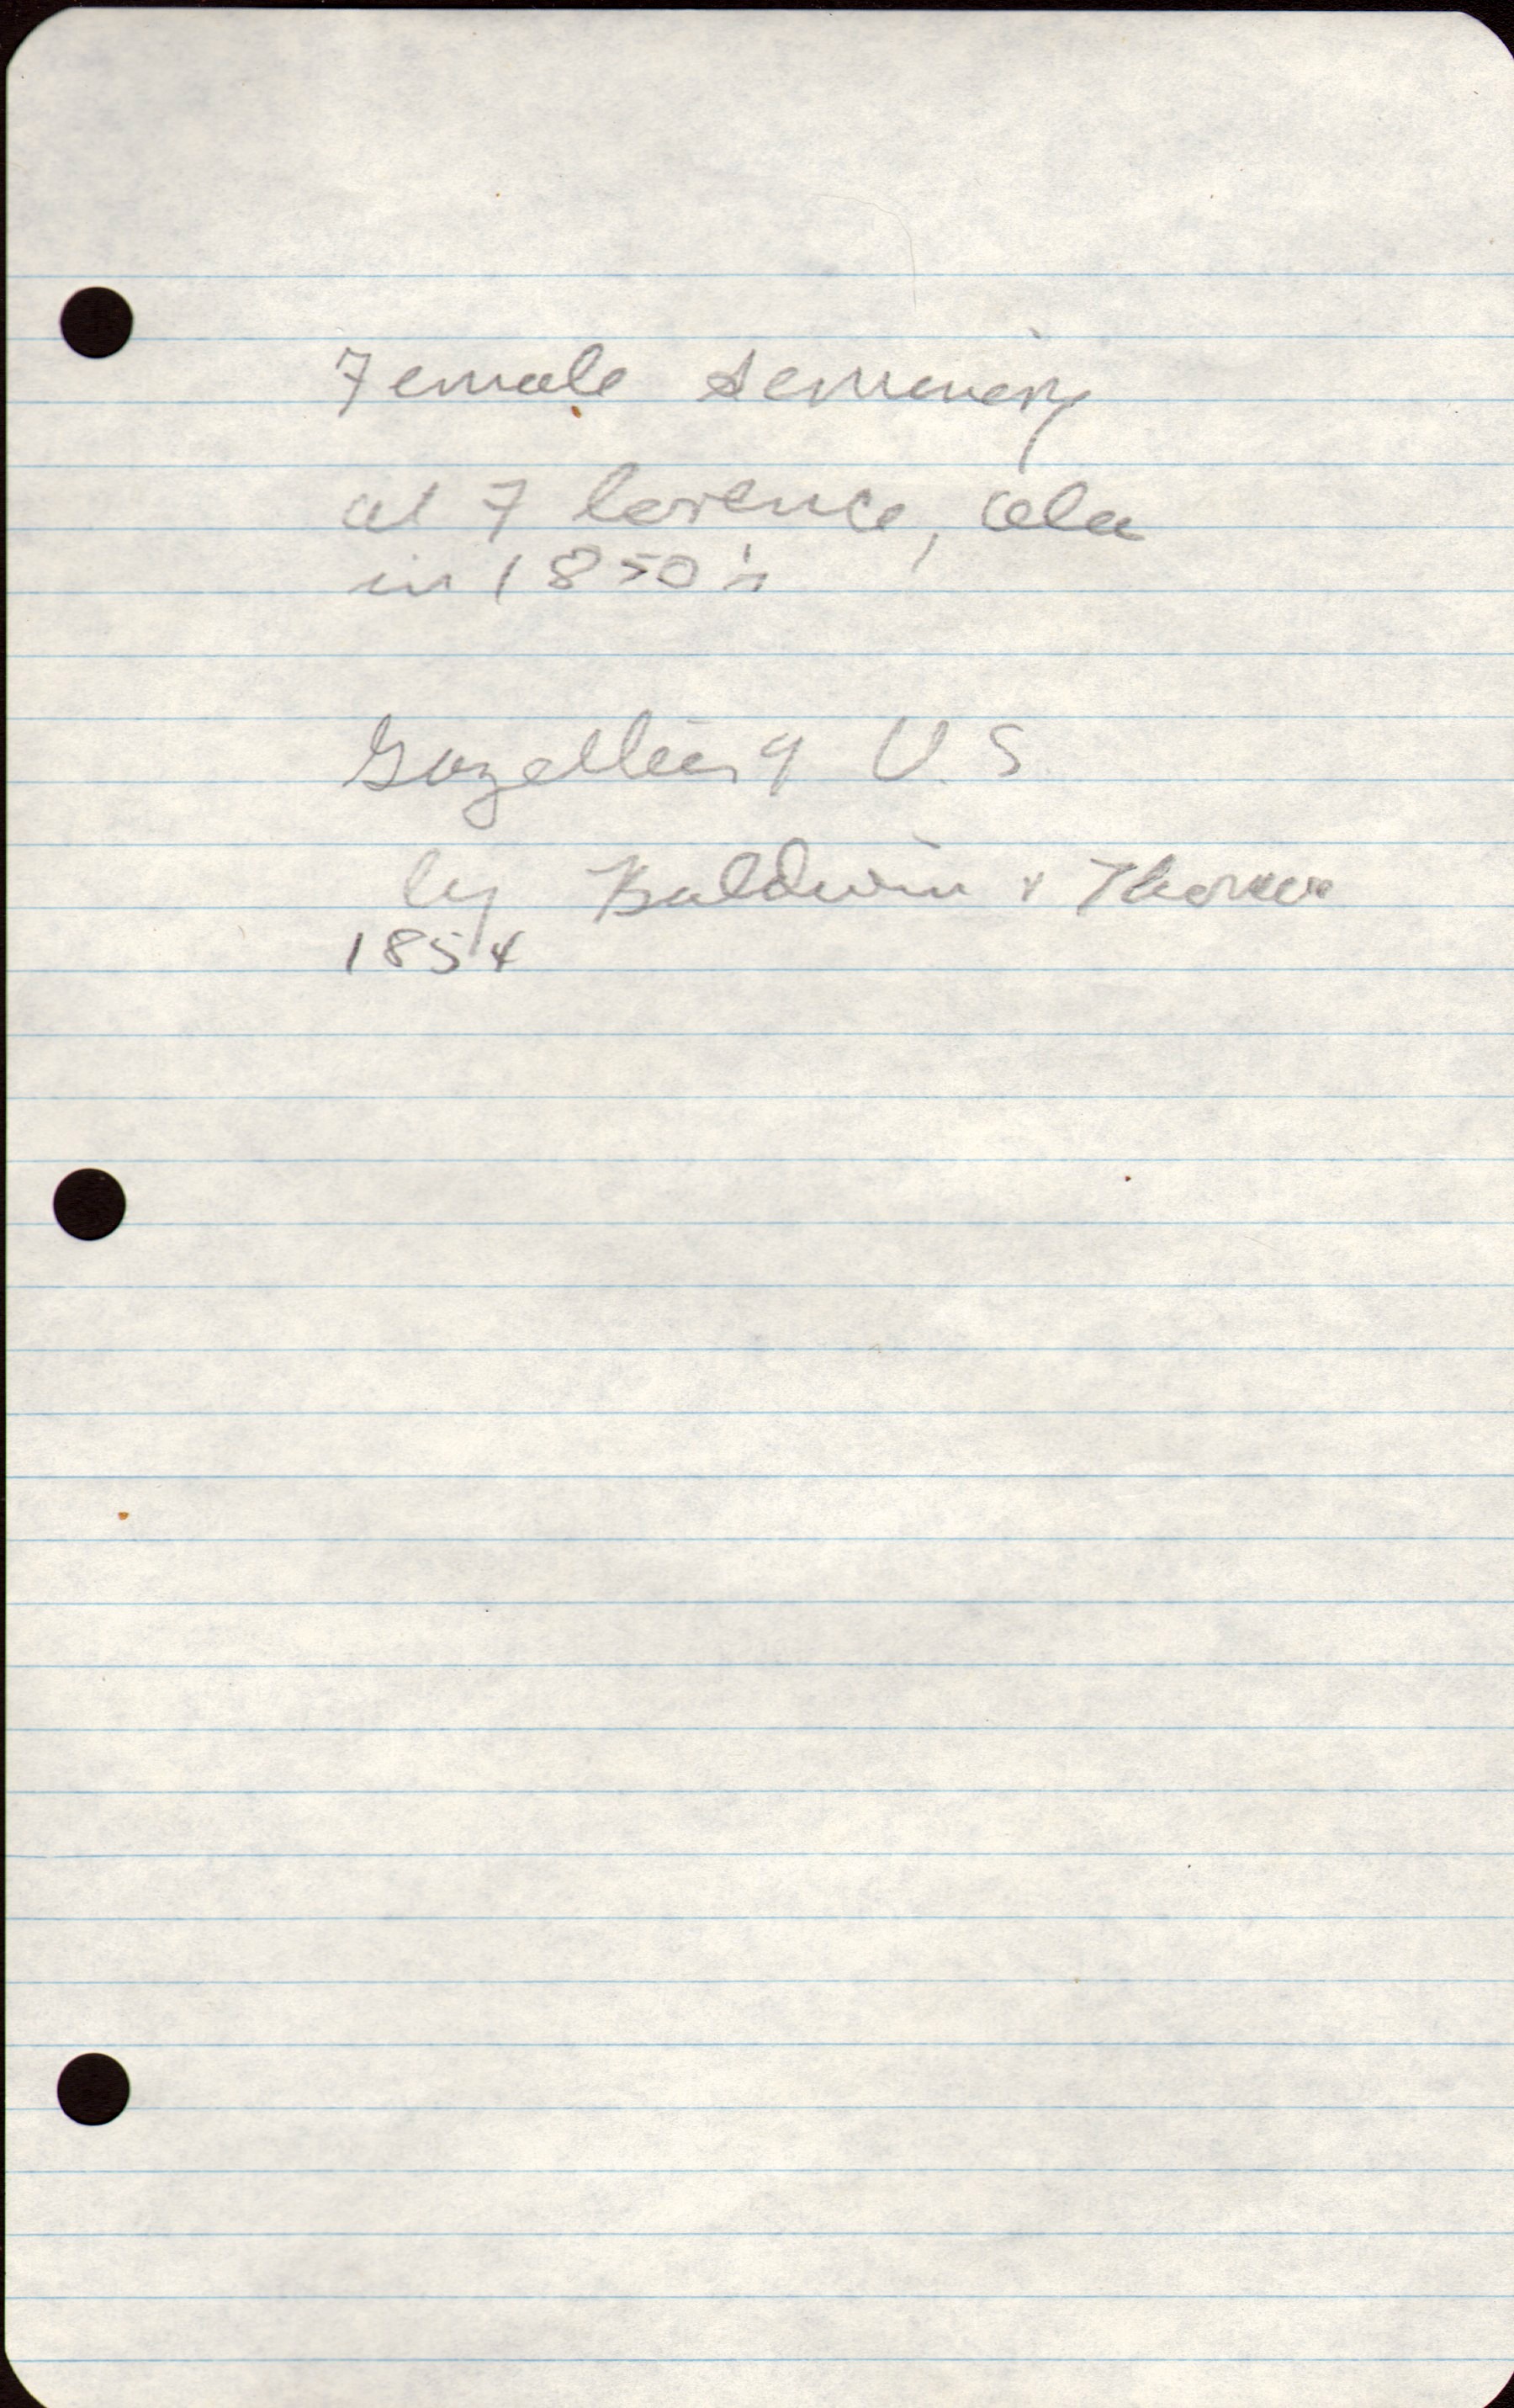 Female Seminary
at Florence, Ala
in 1850's
Gazetteer of U.S.
by Baldwin & Thomas
1854